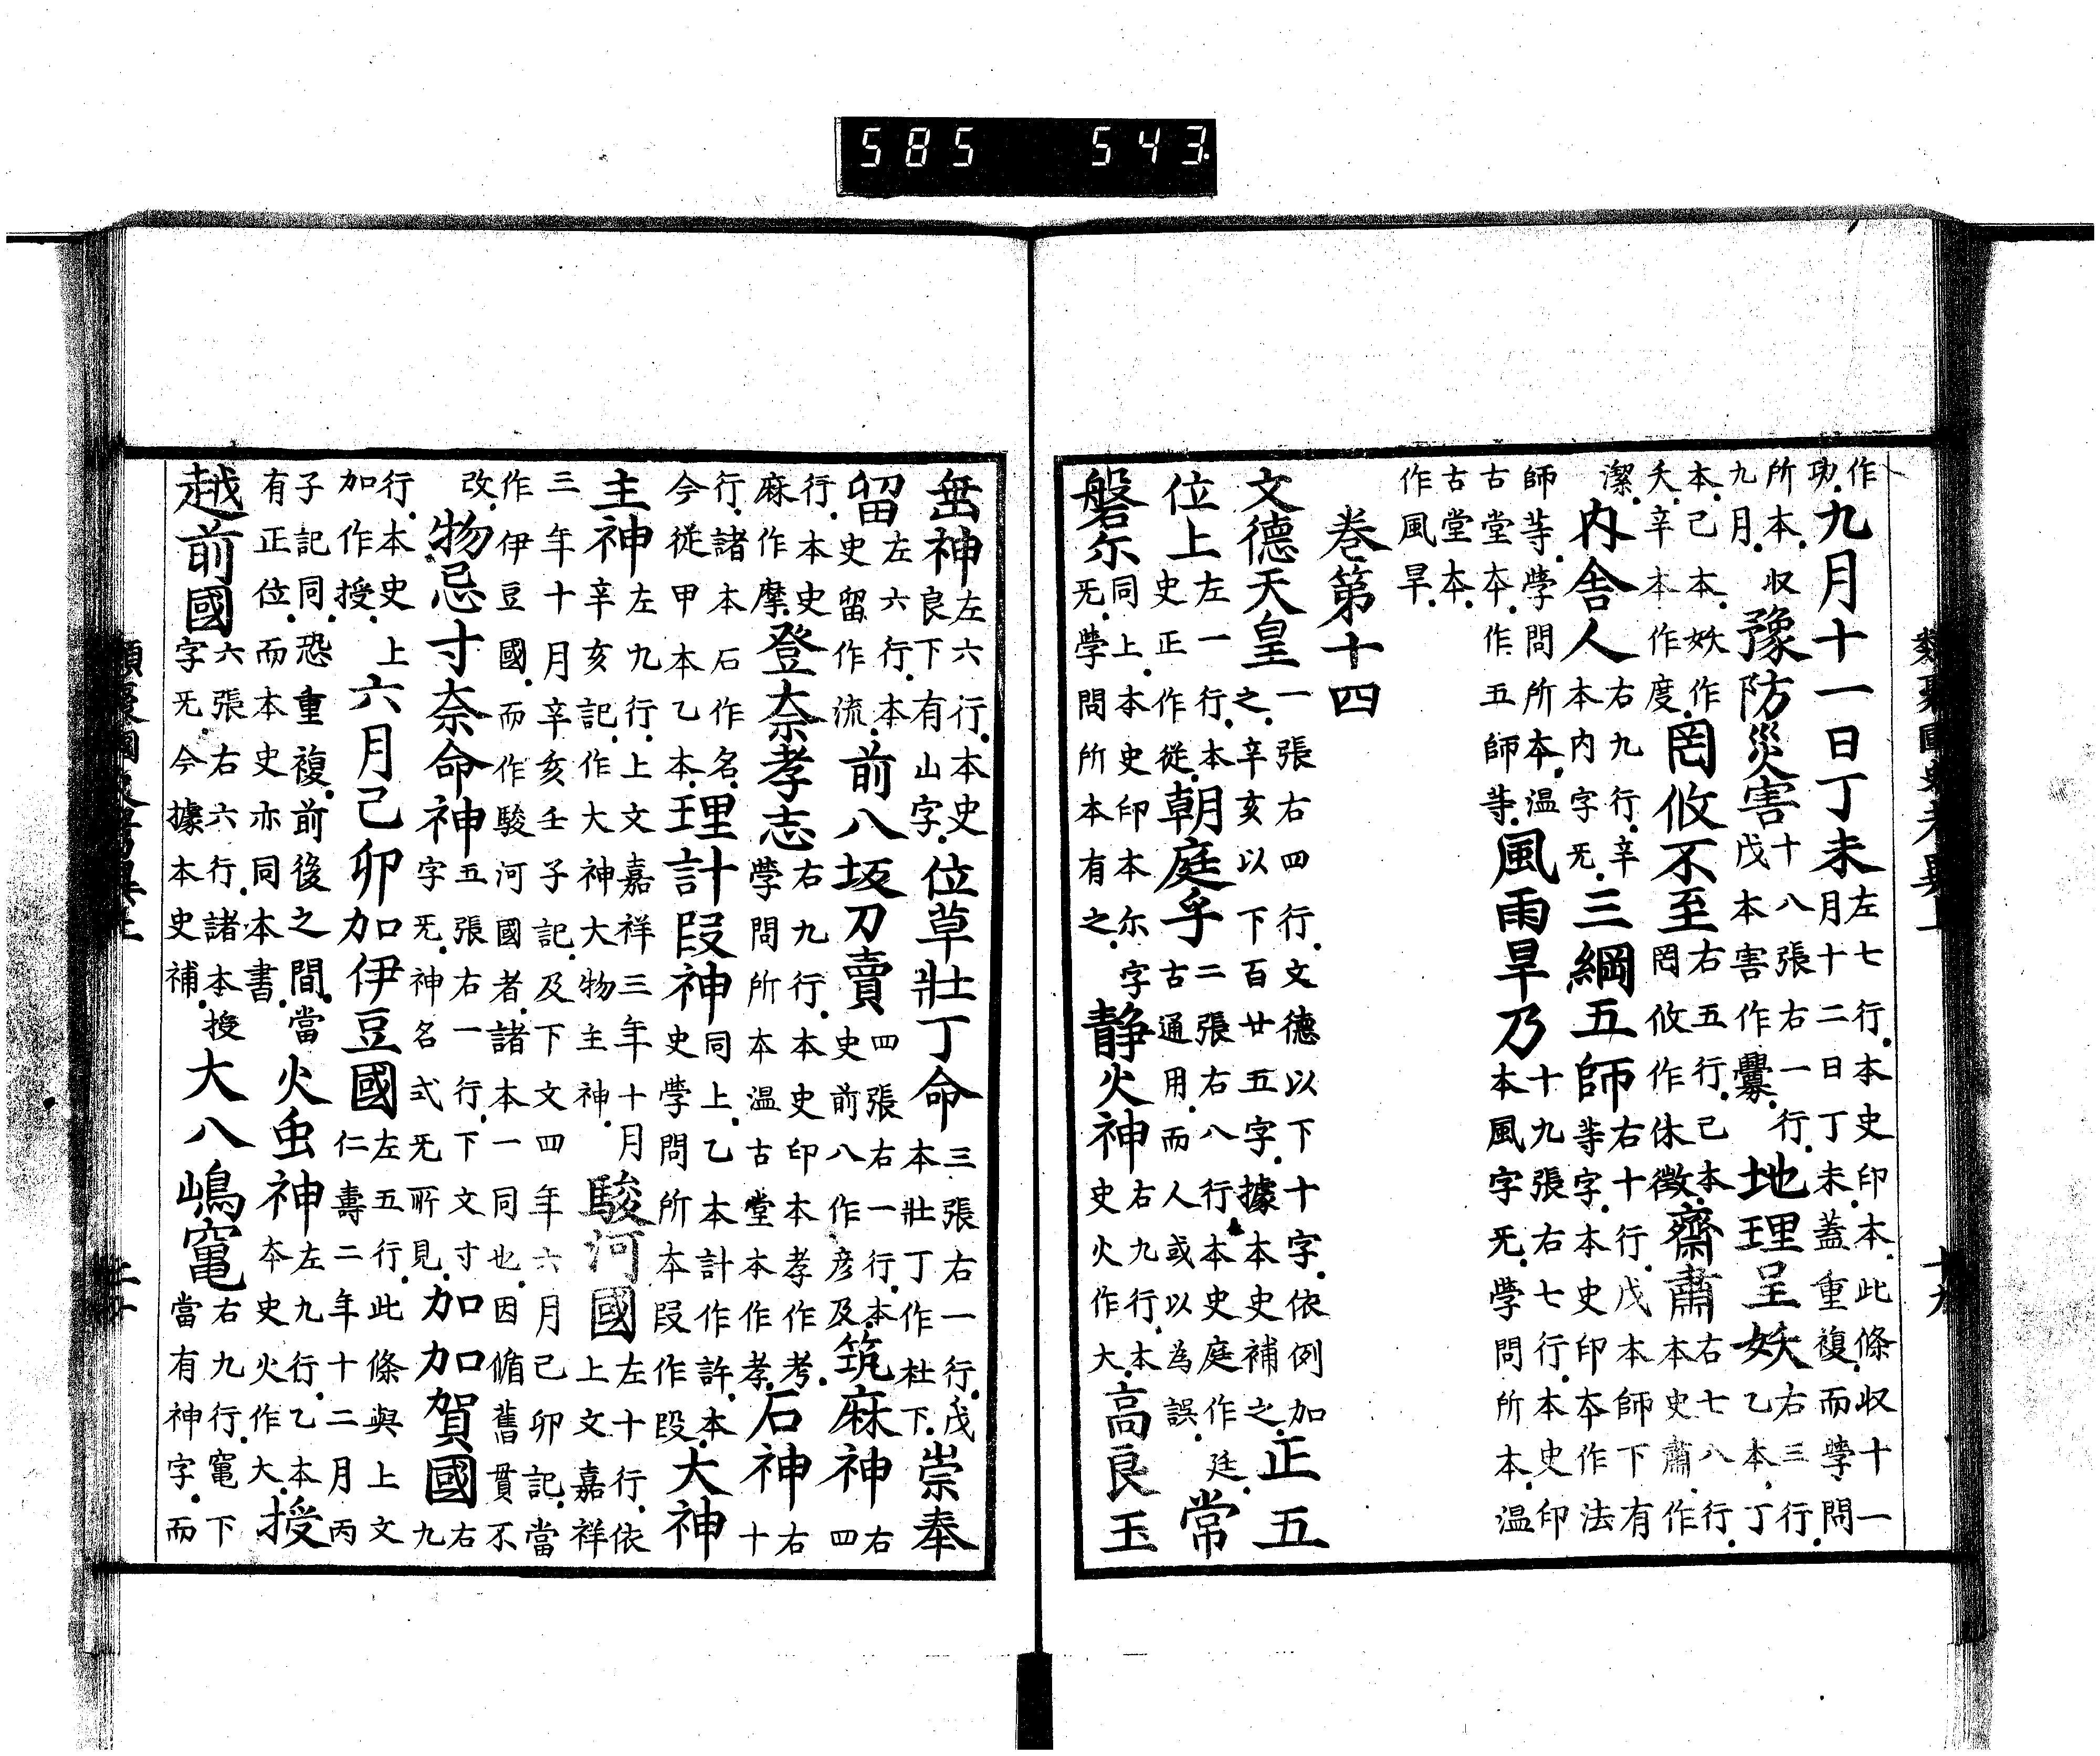 作功.九月十一日丁未左七行.本史印本.此條収十一月十二日丁未蓋重複.而學問
所本.収九月.豫防災害十八張右一行.戊本害作釁.地理呈妖右三行.乙本.丁
本.己本.妖作夭.辛本作度.罔攸不至右五行.己本罔攸作休徴.齋肅右七八行.本史肅作
潔.内舎人右九行.辛本内字旡.三綱五師右十行.戊本師下有等字.本史印本作法
師等.學問所本.温古堂本.作五師等.風雨旱乃十九張右七行.本史印本風字旡.學問所本.温
古堂本.作風旱.
卷第十四
文德天皇一張右四行.文德以下十字.依例加之.辛亥以下百廿五字.據本史補之.正五
位上左一行.本史正作從.朝庭乎二張右八行.本史庭作廷.古通用.而人或以為誤.常
磐尓同上.本史印本尓字旡.學問所本有之.静火神右九行.本史火作大.高良玉
垂神左六行.本史良下有山字.位草壯丁命三張右一行.戊本壯丁作杜下.崇奉
留左六行.本史留作流.前八坂刀賣四張右一行.本史前八作彦及.筑麻神右四
行.本史麻作摩.登奈孝志右九行.本史印本孝作考.學問所本温古堂本作孝.石神右十
行.諸本石作名.今從甲本乙本.理計段神同上.乙本計作許.本史學問所本段作段.大神
主神左九行.上文嘉祥三年十月辛亥記.作大神大物主神.駿河國左十行.依上文嘉祥
三年十月辛亥壬子記.及下文四年六月己卯記.當作伊豆國.而作駿河國者.諸本一同也.因循舊貫不
改.物忌寸奈命神五張右一行.下文寸字旡.神名式旡所見.加加賀國右九
行.本史上加作授.六月己卯加伊豆國左五行.此條與上文仁壽二年十二月丙
子記同.恐重複.前後之間.當有正位.而本史亦同本書.火虫神左九行.乙本本史火作大.授
越前國六張右六行.諸本授字旡.今據本史補.大八嶋竈右九行.竈下當有神字.而